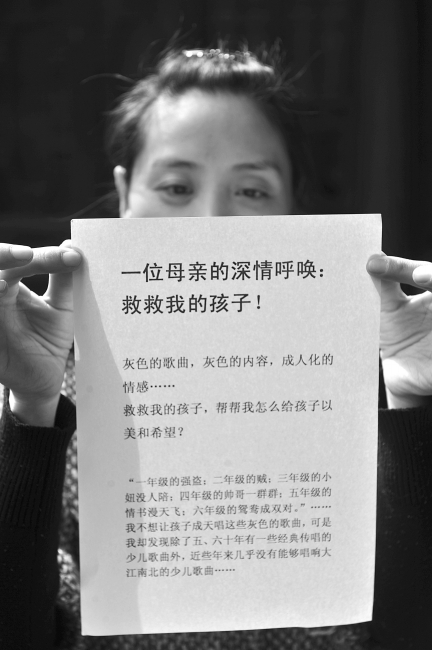 一位母亲的深情呼唤：
救救我的孩子！
灰色的歌曲，灰色的内容，成人化的
情感……
救救我的孩子，帮帮我怎么给孩子以
美和希望？
“一年级的强盗；二年级的贼；三年级的小
姐没人陪；四年级的帅哥一群群；五年级的
情书漫天飞；六年级的鸳鸯成双对。”……
我不想让孩子成天唱这些灰色的歌曲，可是
我却发现除了五、六十年有一些经典传唱的
少儿歌曲外，近些年来几乎没有能够唱响大
江南北的少儿歌曲……